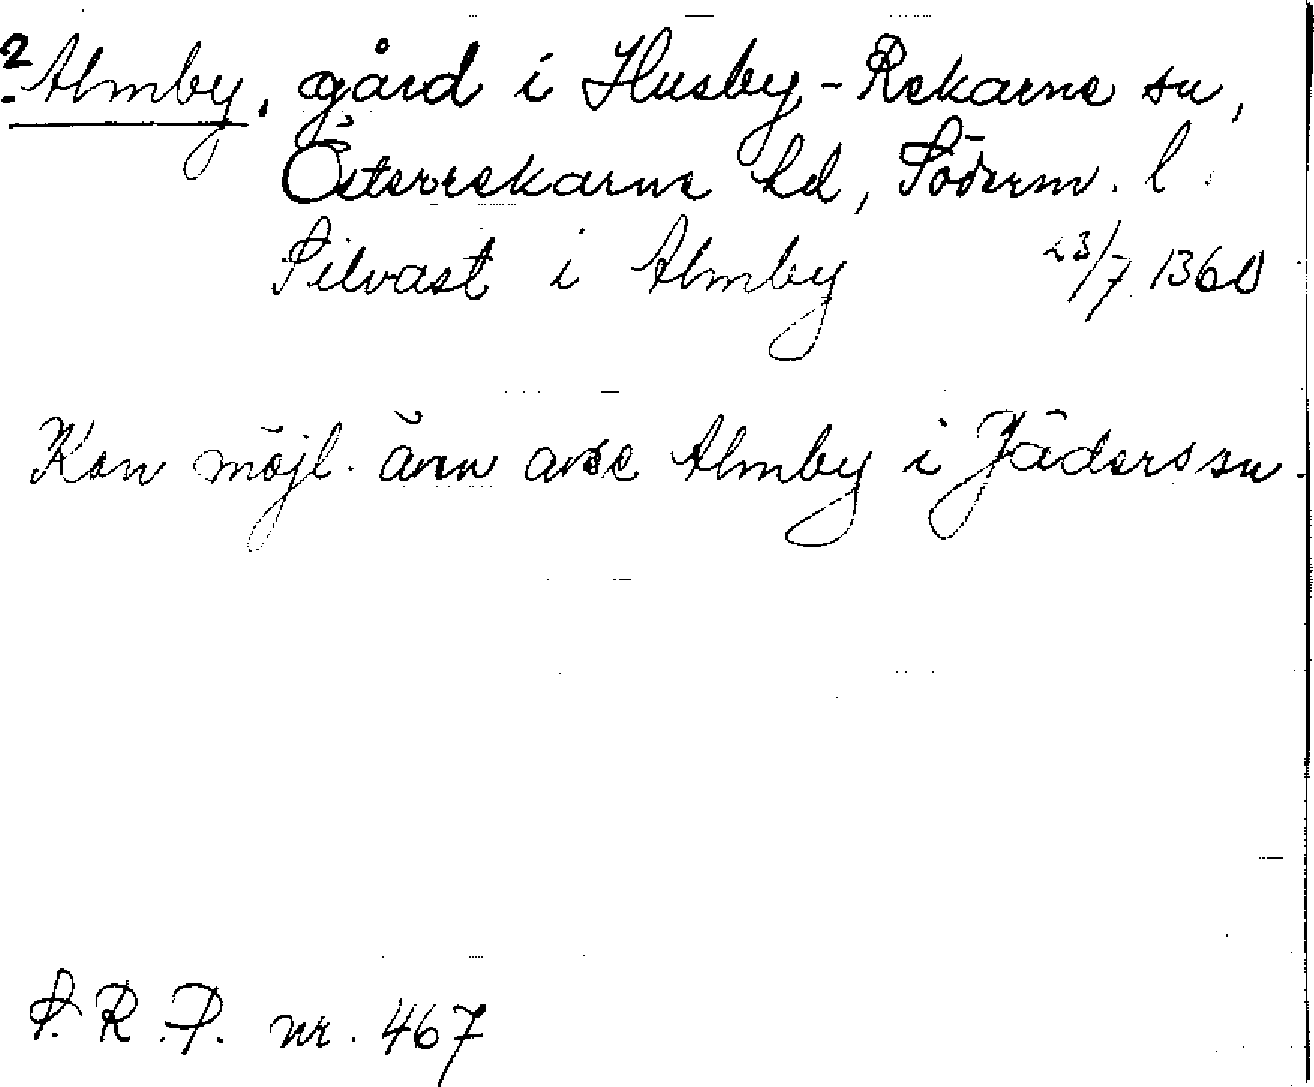 ? Almby, gård i Husby-Rekarne sn,
Österrekarne hd, Söderm. l.
Silvast i Almby 23/7 1360
Kan möjl. även avse Almby i Jäders sn.
S.R.P. nr. 467